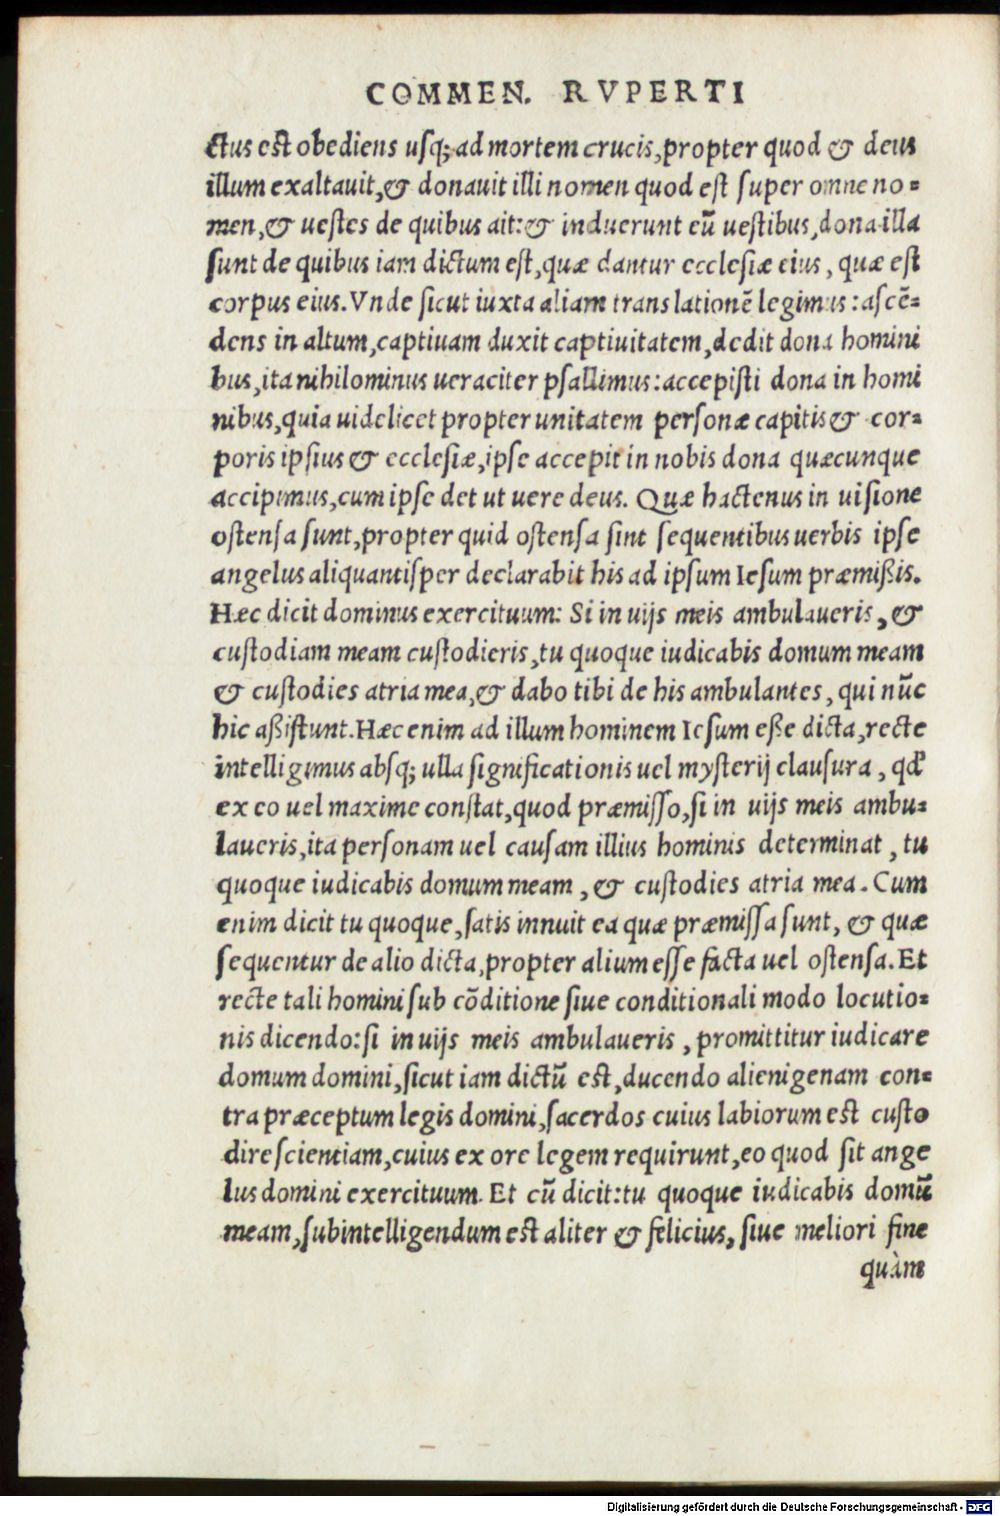 COMMEN. RVPERTI
ctus est obediens usq; ad mortem crucis, propter quod & deus
illum exaltauit, & donauit illi nomen quod est super omne no-
men, & uestes de quibus ait: & induerunt eũ uestibus, dona illa
sunt de quibus iam dictum est, quæ dantur ecclesiæ eius, quæ est
corpus eius. Vnde sicut iuxta aliam translationẽ legimus: ascẽ-
dens in altum, captiuam duxit captiuitatem, dedit dona homini
bus, ita nihilominus ueraciter psallimus: accepisti dona in homi
nibus, quia uidelicet propter unitatem personæ capitis & cor-
poris ipsius & ecclesiæ, ipse accepit in nobis dona quæcunque
accipimus, cum ipse det ut uere deus. Quæ hactenus in uisione
ostensa sunt, propter quid ostensa sint sequentibus uerbis ipse
angelus aliquantisper declarabit his ad ipsum Iesum præmißis.
Hæc dicit dominus exercituum: Si in uijs meis ambulaueris, &
custodiam meam custodieris, tu quoque iudicabis domum meam
& custodies atria mea, & dabo tibi de his ambulantes, qui nũc
hic aßistunt. Hæc enim ad illum hominem Iesum eße dicta, recte
intelligimus absq; ulla significationis uel mysterij clausura, qđ
ex eo uel maxime constat, quod præmisso, si in uijs meis ambu-
laueris, ita personam uel causam illius hominis determinat, tu
quoque iudicabis domum meam, & custodies atria mea. Cum
enim dicit tu quoque, satis innuit ea quæ præmissa sunt, & quæ
sequentur de alio dicta, propter alium esse facta uel ostensa. Et
recte tali homini sub cõditione siue conditionali modo locutio-
nis dicendo: si in uijs meis ambulaueris, promittitur iudicare
domum domini, sicut iam dictũ est, ducendo alienigenam con-
tra præceptum legis domini, sacerdos cuius labiorum est custo
dire scientiam, cuius ex ore legem requirunt, eo quod sit ange
lus domini exercituum. Et cũ dicit: tu quoque iudicabis domũ
meam, subintelligendum est aliter & felicius, siue meliori fine
quàm
Digitalisierung gefördert durch die Deutsche Forschungsgemeinschaft - DFG